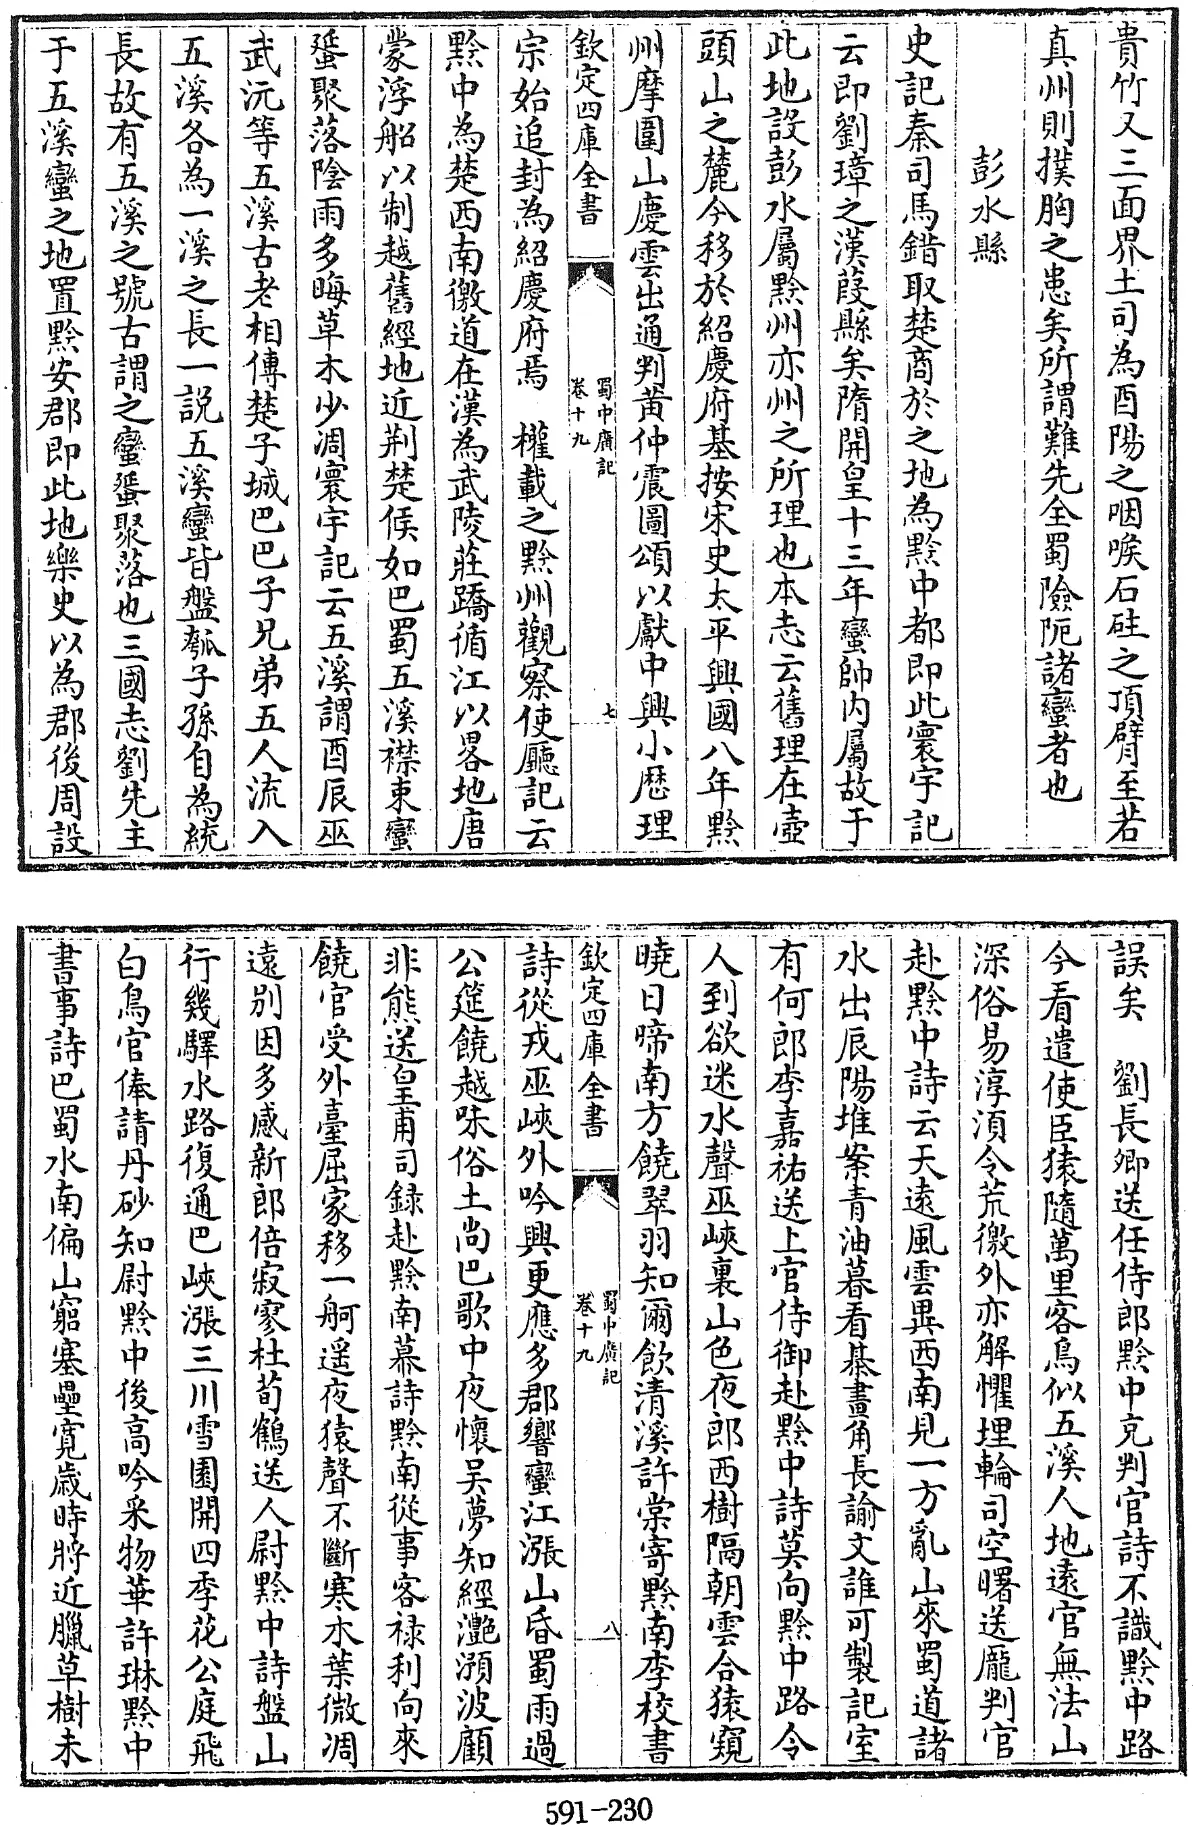 貴竹又三面界土司為酉陽之咽喉石砫之頂臂至若
真州則撲胸之患矣所謂難先全蜀險阨諸蠻者也
彭水縣
史記秦司馬錯取楚商於之地為黔中都即此寰宇記
云即劉璋之漢葭縣矣隋開皇十三年蠻帥内屬故于
此地設彭水屬黔州亦州之所理也本志云舊理在壺
頭山之麓今移於紹慶府基按宋史太平興國八年黔
州摩圍山慶雲出通判黄仲震圖頌以獻中興小歴理
欽定四庫全書
蜀中廣記
卷十九
七
宗始追封為紹慶府焉 權載之黔州觀察使廳記云
黔中為楚西南徼道在漢為武陵莊蹻循江以畧地唐
蒙浮船以制越舊經地近荆楚俟如巴蜀五溪襟束蠻
蜑聚落陰雨多晦草木少凋寰宇記云五溪謂酉辰巫
武沅等五溪古老相傳楚子城巴巴子兄弟五人流入
五溪各為一溪之長一説五溪蠻皆盤瓠子孫自為統
長故有五溪之號古謂之蠻蜑聚落也三國志劉先主
于五溪蠻之地置黔安郡即此地樂史以為郡後周設
誤矣 劉長卿送任侍郎黔中充判官詩不識黔中路
今看遣使臣猿隨萬里客鳥似五溪人地遠官無法山
深俗易淳湏令荒徼外亦解懼埋輪司空曙送龎判官
赴黔中詩云天遠風雲異西南見一方亂山來蜀道諸
水出辰陽堆案青油暮看棊畫角長諭文誰可製記室
有何郎李嘉祐送上官侍御赴黔中詩莫向黔中路令
人到欲迷水聲巫峽裏山色夜郎西樹隔朝雲合猿窺
曉日啼南方饒翠羽知爾飲清溪許棠寄黔南李校書
欽定四庫全書
蜀中廣記
卷十九
八
詩從戎巫峽外吟興更應多郡響蠻江漲山昏蜀雨過
公筵饒越味俗土尚巴歌中夜懷吴夢知經灔澦波顧
非熊送皇甫司録赴黔南幕詩黔南從事客禄利向來
饒官受外臺屈家移一舸遥夜猿聲不斷寒木葉微凋
遠別因多感新郎倍寂寥杜荀鶴送人尉黔中詩盤山
行幾驛水路復通巴峽漲三川雪園開四季花公庭飛
白鳥官俸請丹砂知尉黔中後高吟采物華許琳黔中
書事詩巴蜀水南偏山窮塞壘寛歳時將近臘草樹未
591-230